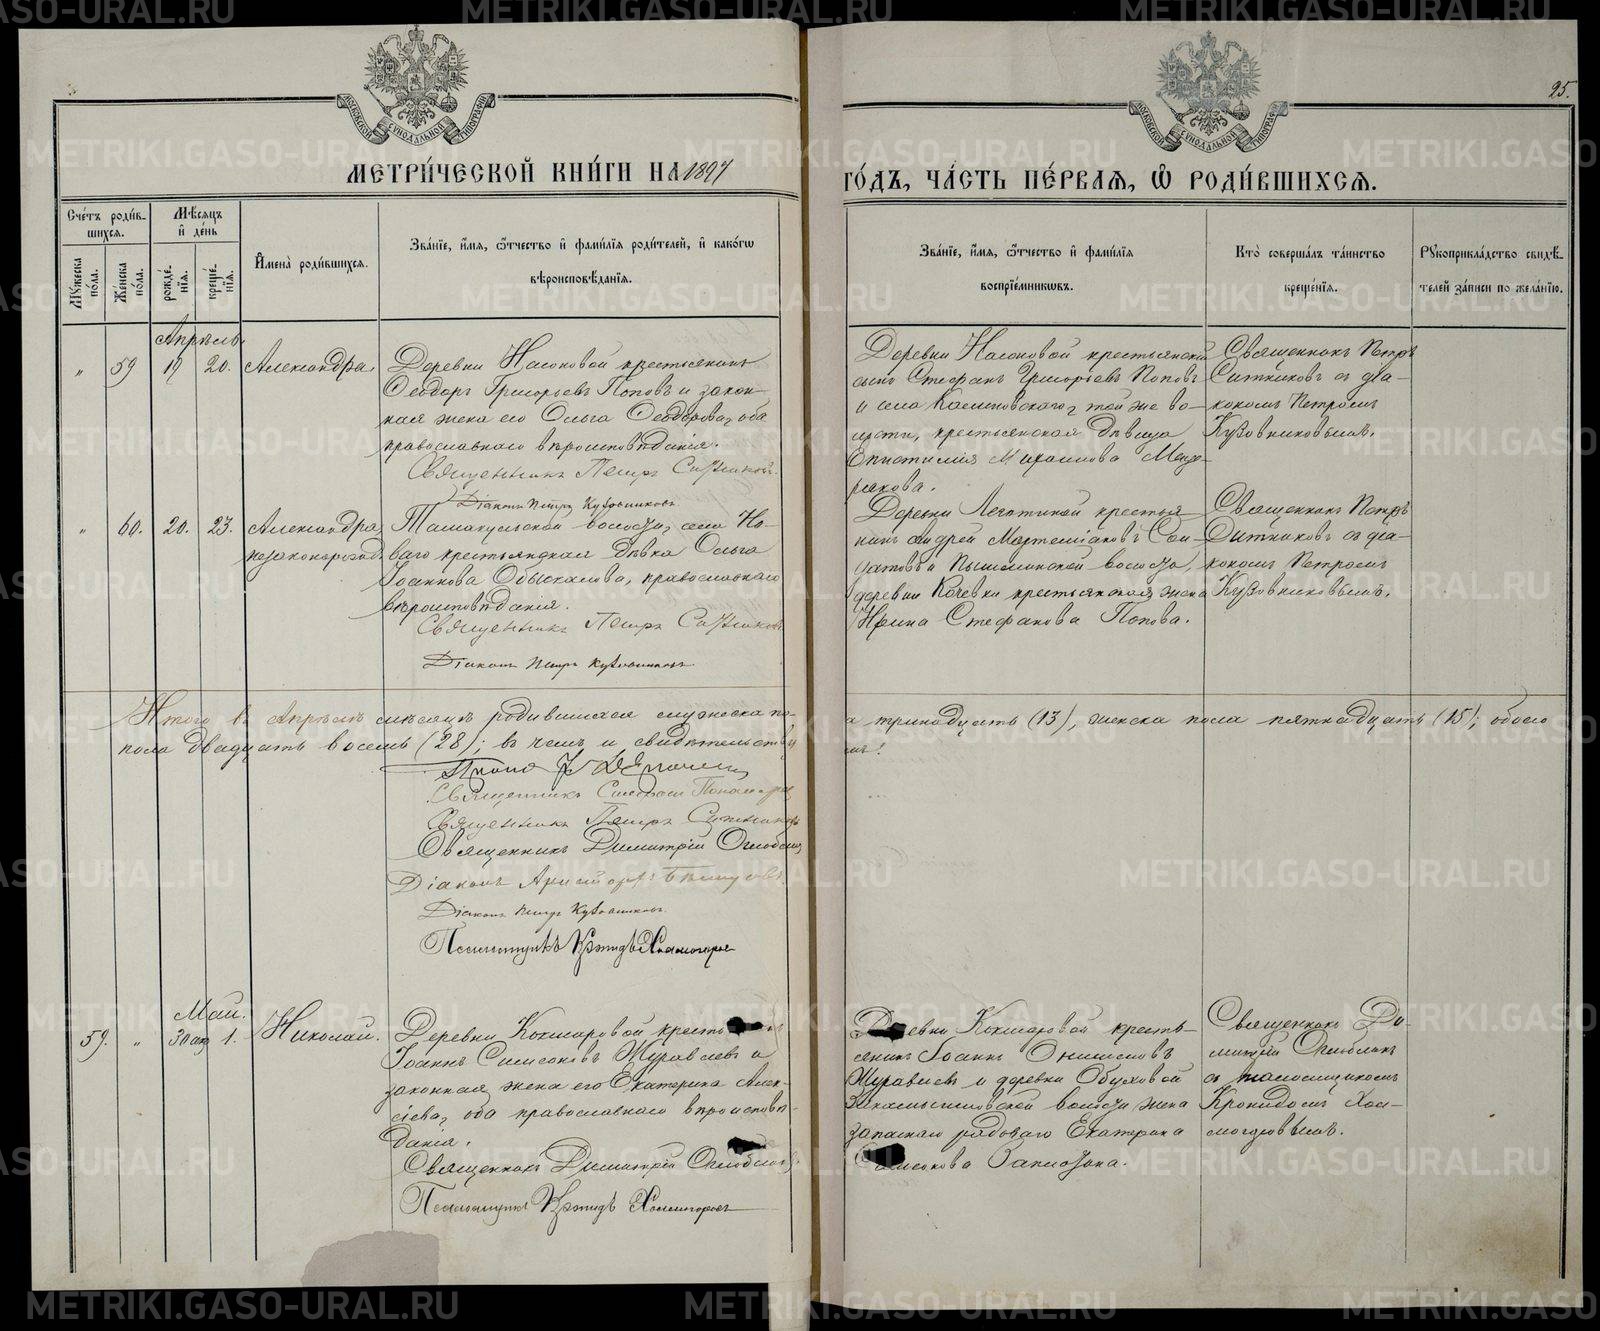 25.
МОСКОВСКОЙ СѴНОДАЛЬНОЙ ТИПОГРАФІИ
МОСКОВСКОЙ СѴНОДАЛЬНОЙ ТИПОГРАФІИ
МЕТРИ́ЧЕСКОЙ КНИ́ГИ НА 1897
ГО́ДЪ, ЧА́СТЬ ПЕ́РВАЯ, Ѡ РОДИ́ВШИХСЯ.
Сче́тъ роди́вшихся.
Мѣ́сяцъ и де́нь
Му́жеска по́ла.
Же́нска по́ла.
рожде́нія.
креще́нія.
Имена̀ роди́вшихся.
Зва́ніе, и́мя, ѻ́тчество и фами́лія роди́телей, и како́гѡ
вѣроисповѣ́данія.
Зва́ніе, и́мя, ѻ́тчество и фами́лія
воспріе́мникѡвъ.
Кто̀ соверша́лъ та́инство
креще́нія.
Рукоприкла́дство свидѣ́-
телей за́писи по жела́нію.
Апрѣль.
" 59 19 20. Александра.
Деревни Насоновой крестьянинъ
Ѳеодоръ Григорьевъ Поповъ и закон-
ная жена его Ольга Ѳеодорова, оба
православнаго вѣроисповѣданія.
Священникъ Петръ Ситниковъ
Діаконъ Петръ Кузовниковъ
Деревни Насоновой крестьянскій
сынъ Стефанъ Григорьевъ Поповъ
и села той же во-
лости, крестьянская дѣвица
Михаилова
Священникъ Петръ
Ситниковъ съ діа-
кономъ Петромъ
Кузовниковымъ.
" 60. 20. 23. Александра
незаконорожд.
Тамакульской волости, села Но-
ваго крестьянская дѣвка Ольга
Іоаннова православнаго
вѣроисповѣданія.
Священникъ Петръ Ситниковъ
Діаконъ Петръ Кузовниковъ
Деревни крестья-
нинъ Андрей
и Пышминской волости,
деревни Кочевки крестьянская жена
Ирина Стефанова Попова.
Священникъ Петръ
Ситниковъ съ діа-
кономъ Петромъ
Кузовниковымъ.
Итого въ Апрѣлѣ мѣсяцѣ родившихся мужеска по-
ла тринадцать (13), женска пола пятнадцать (15); обоего
пола двадцать восемь (28); въ чемъ и свидѣтельству
емъ:
Священникъ
Священникъ Петръ Ситниковъ
Священникъ Димитрій Оглоблинъ
Діаконъ
Діаконъ Петръ Кузовниковъ.
Псаломщикъ Кронидъ Холмогоровъ
Май.
59. " 30 апр 1. Николай.
Деревни Кокшаровой крестьянинъ
Іоаннъ Симеоновъ Журавлевъ и
законная жена его Екатерина Алек-
сіева, оба православнаго вѣроисповѣ-
данія.
Священникъ Димитрій Оглоблинъ
Псаломщикъ Кронидъ Холмогоровъ
Деревни Кокшаровой кресть-
янинъ Іоаннъ Онисимовъ
Журавлевъ и деревни Обуховой
волости жена
запаснаго рядоваго Екатерина
Симеонова
Священникъ Ди-
митрій Оглоблинъ
съ псаломщикомъ
Кронидомъ Хол-
могоровымъ.
METRIKI.GASO-URAL.RU